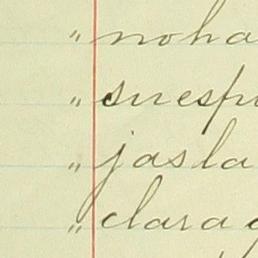 " noha
" snesp
" jasla
" clara g